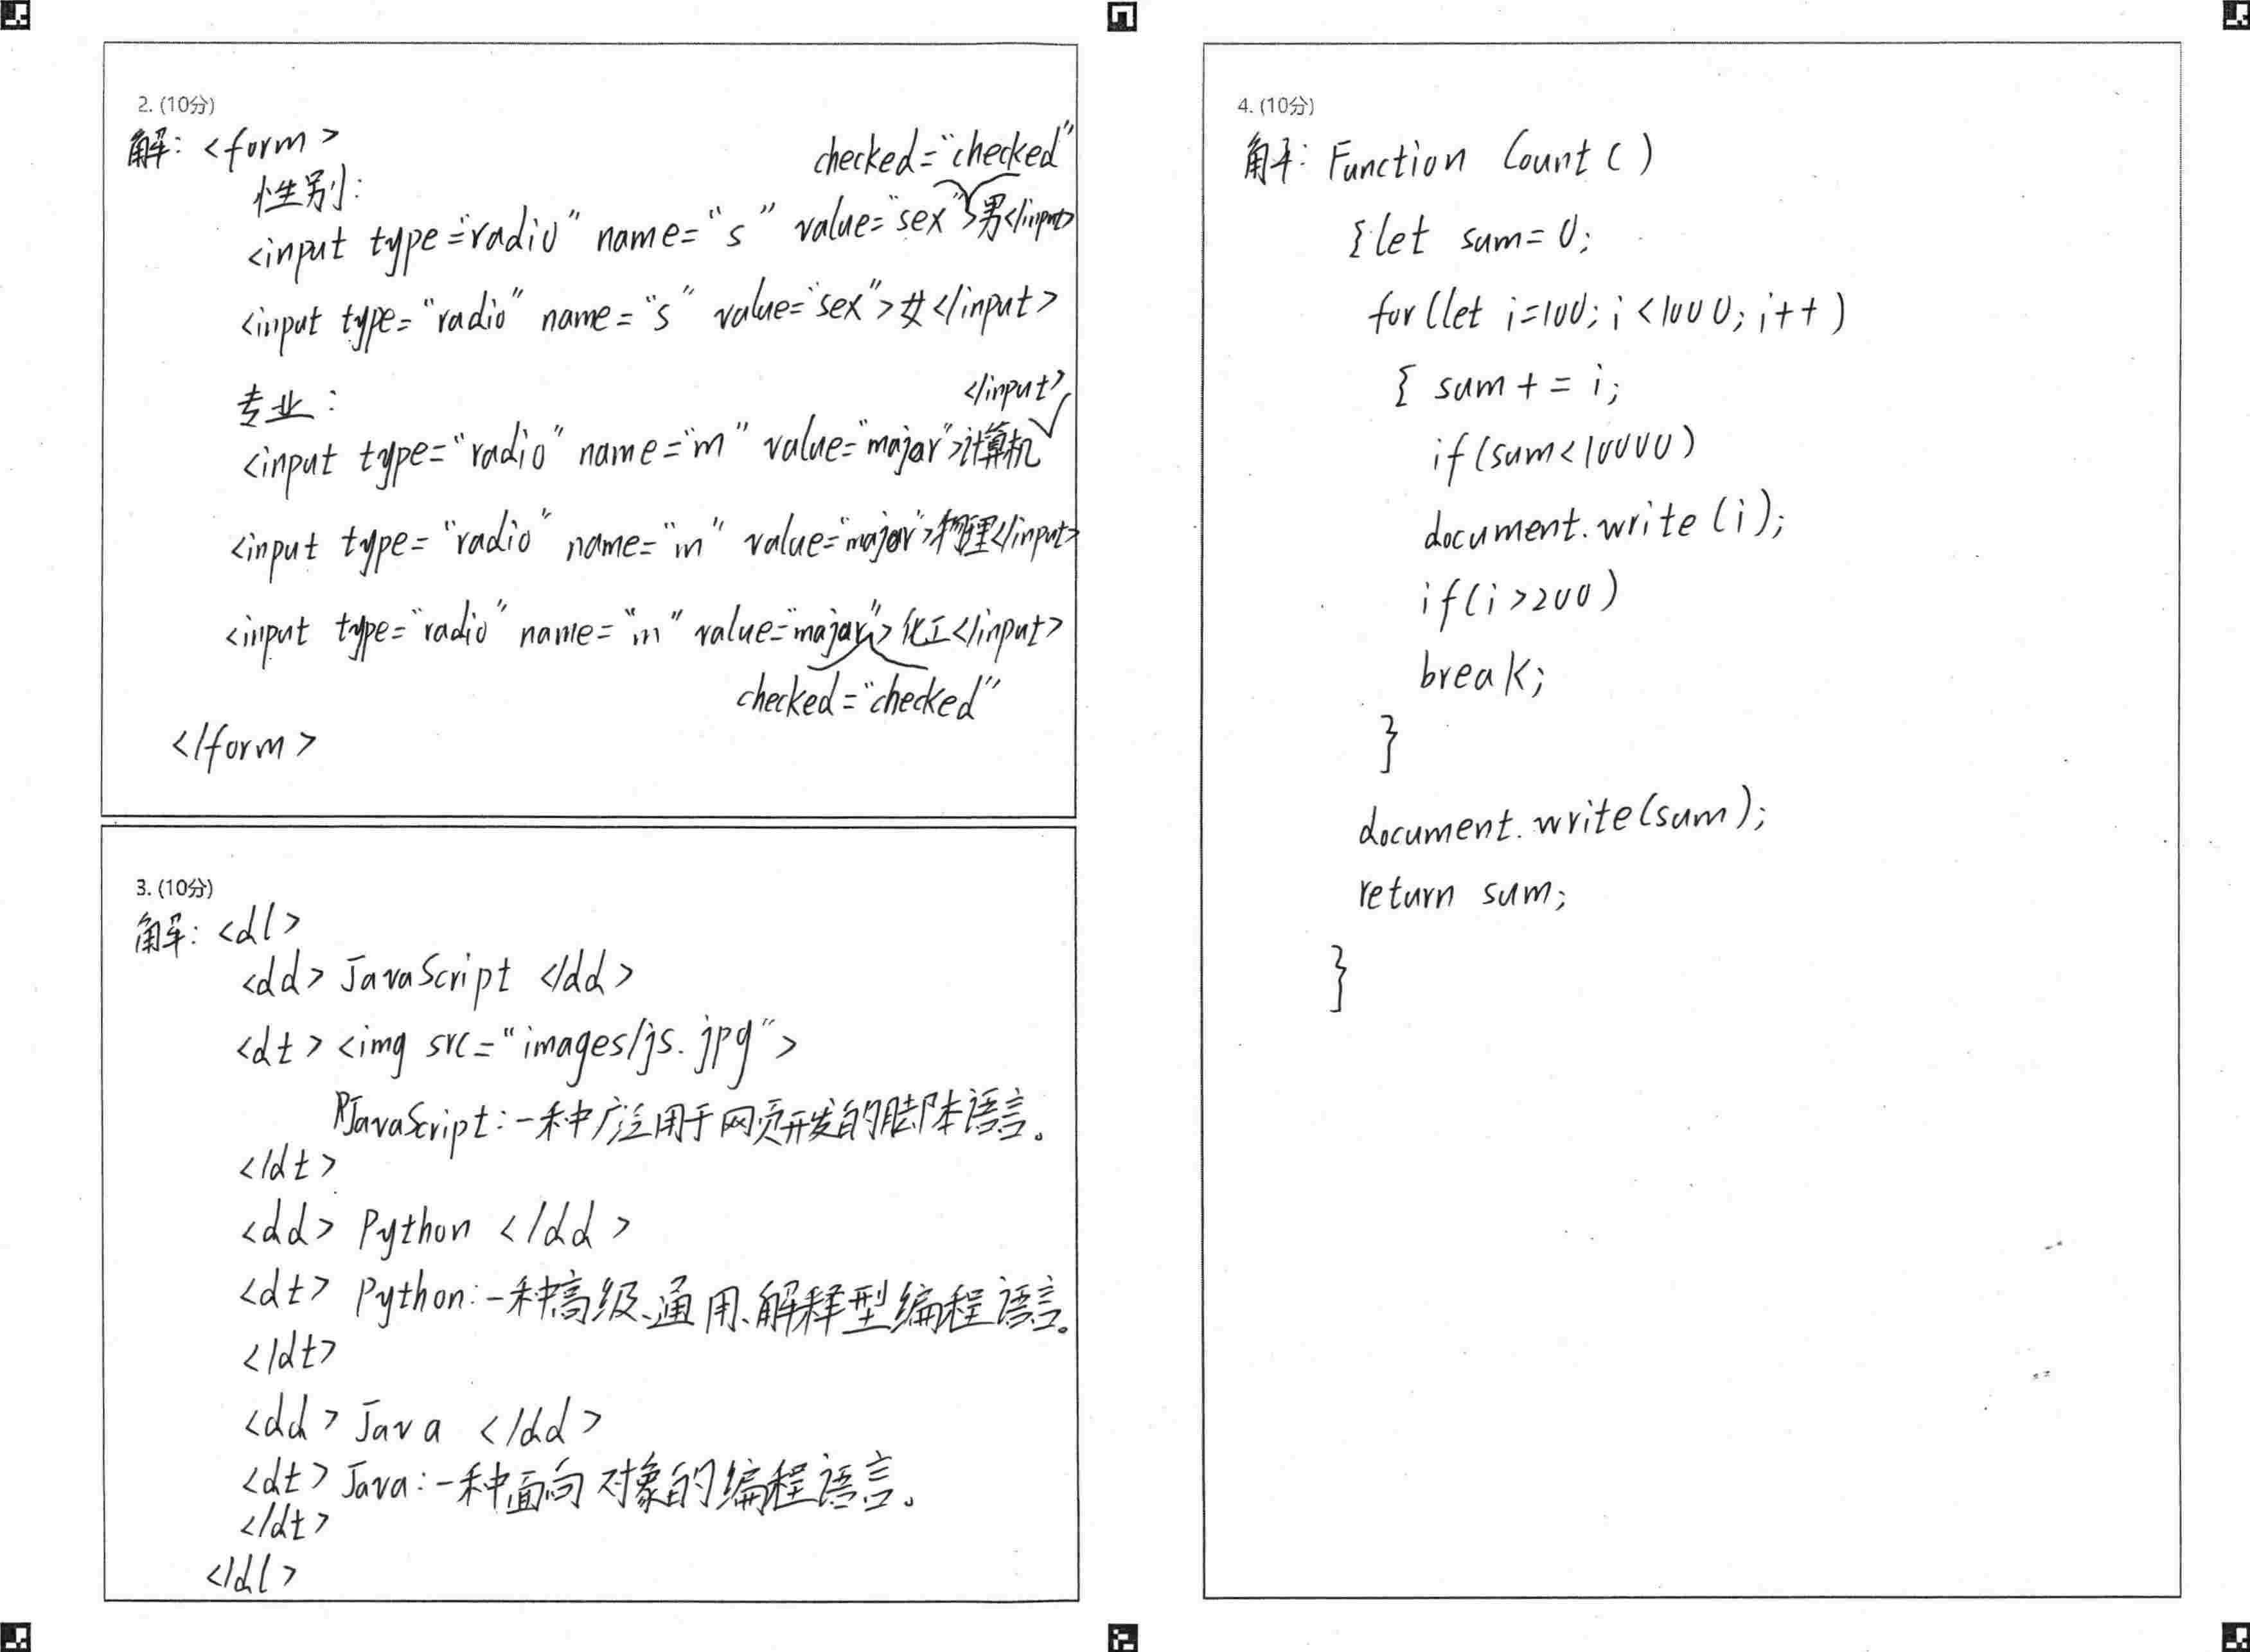 2. (10分)
解: <form>
性别:
<input type="radio" name="s" value="sex" checked="checked">男</input>
<input type="radio" name="s" value="sex">女</input>
专业:
<input type="radio" name="m" value="majar">计算机</input>
<input type="radio" name="m" value="majar">物理</input>
<input type="radio" name="m" value="majar" checked="checked">化工</input>
</form>
3. (10分)
解: <dl>
<dd> JavaScript </dd>
<dt> <img src="images/js.jpg">
JavaScript:一种广泛用于网页开发的脚本语言。
</dt>
<dd> Python </dd>
<dt> Python:一种高级、通用、解释型编程语言。
</dt>
<dd> Java </dd>
<dt> Java:一种面向对象的编程语言。
</dt>
</dl>
4. (10分)
解: Function Count()
{let sum=0;
for(let i=100;i<1000;i++)
{ sum+=i;
if(sum<10000)
document.write(i);
if(i>200)
break;
}
document.write(sum);
return sum;
}